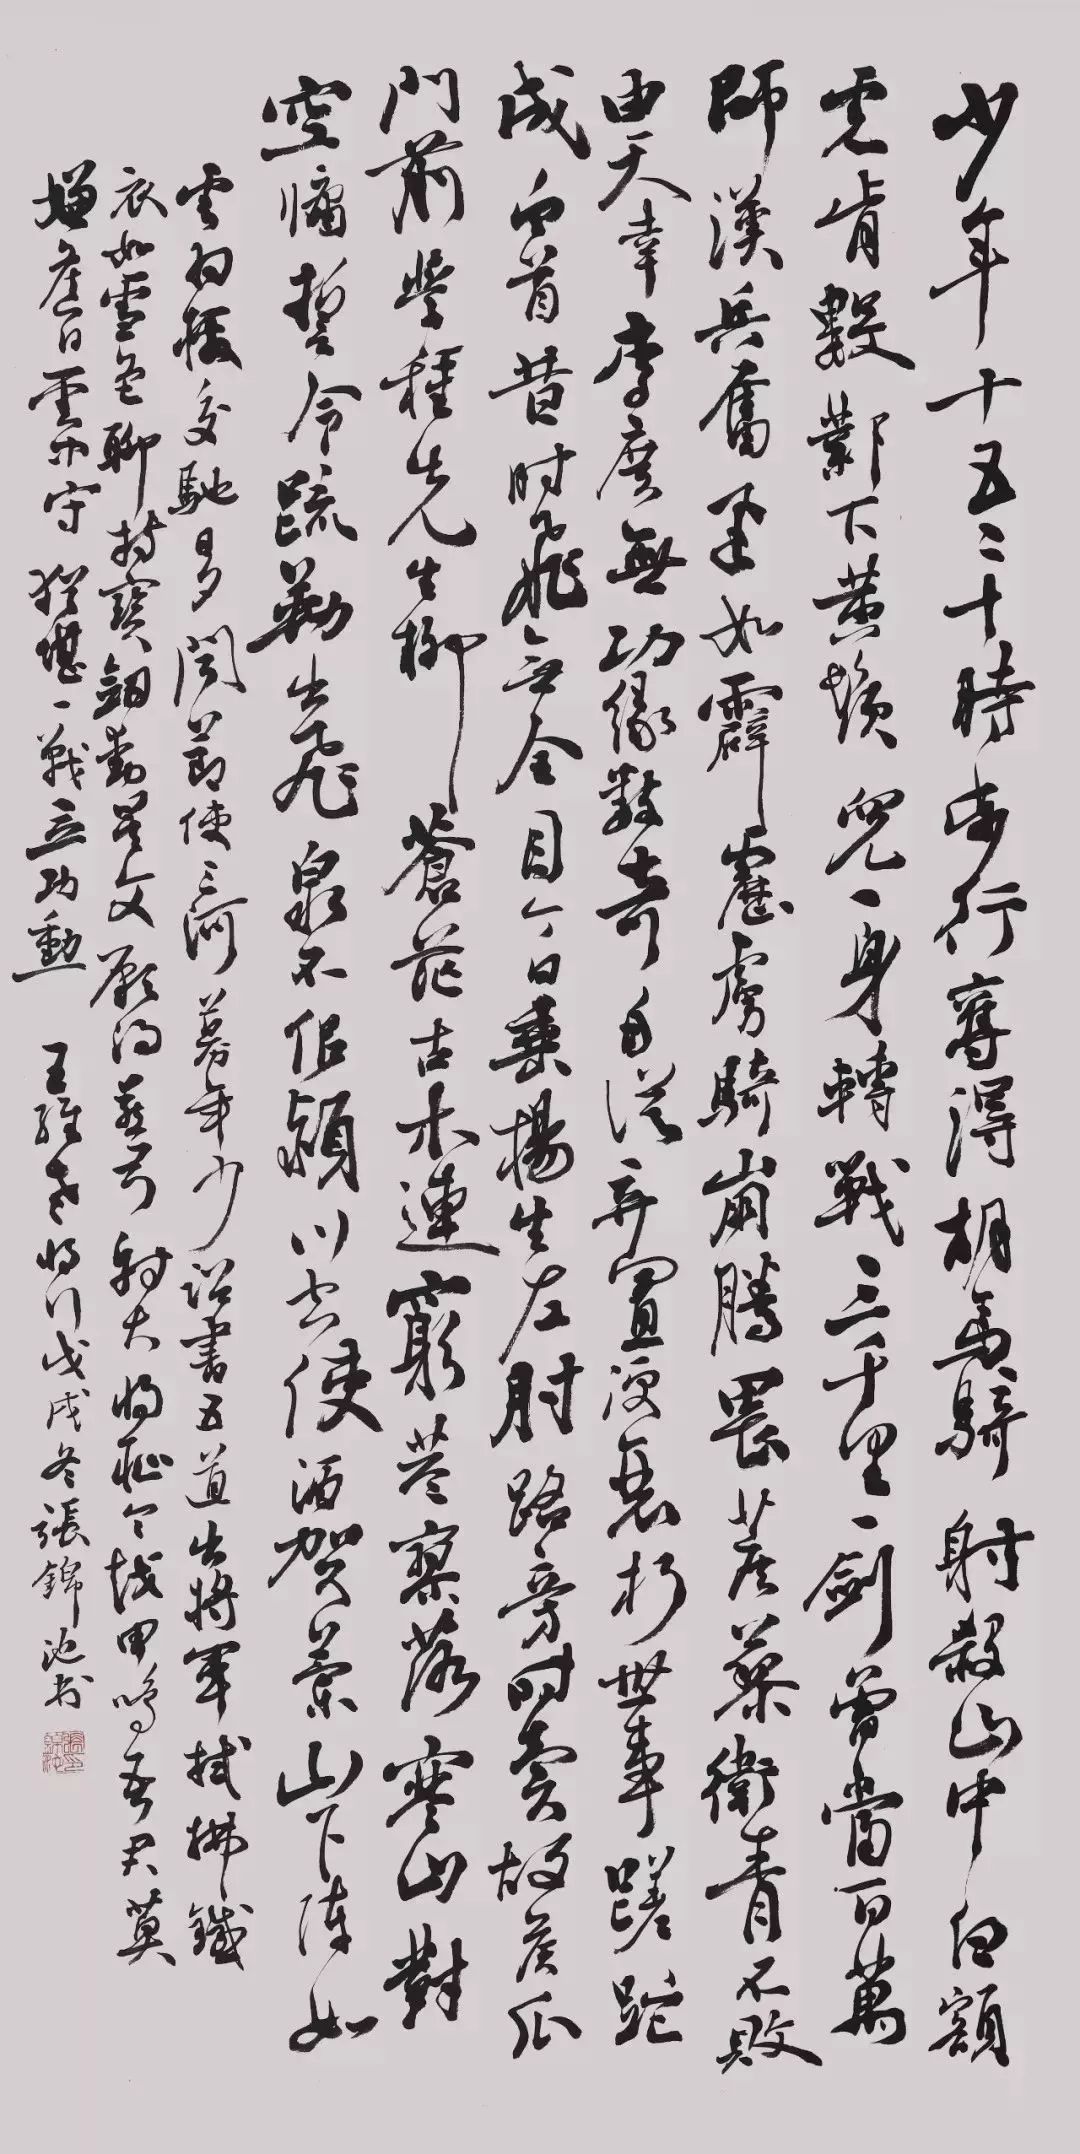 少年十五二十時步行奪得胡馬騎射殺山中白額
虎肯數鄴下黄鬚兒一身轉戰三千里一劍曾當百萬
師漢兵奮迅如霹靂虜騎崩騰畏蒺藜衛青不敗
由天幸李廣無功缘數奇自從弃置便衰朽世事蹉跎
成白首昔时飛无全目今日垂楊生左肘路旁时賣故侯瓜
門前學種先生柳蒼茫古木連窮巷寥落寒山對
空牖誓令疏勒出飛泉不似潁川空使酒賀蘭山下陣如
雲羽檄交馳日夕聞節使三河募年少詔書五道出將軍拭拂鐵
衣如雪色聊持寶劍動星文願得燕弓射大將恥令越甲鳴吾君莫
嫌舊日雲中守猶堪一戰立功勳 王維老將行戊戌冬張錦池書